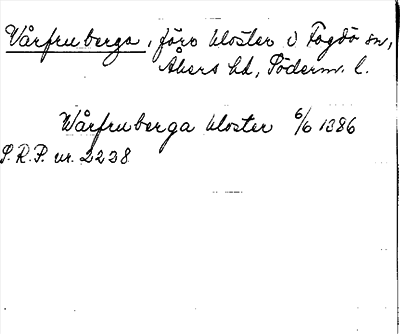 Vårfruberga, förv kloster i Fogdö sn,
Åkers hd, Söderm. l.
Wårfruberga kloster 6/6 1386
S.R.P. nr. 2238